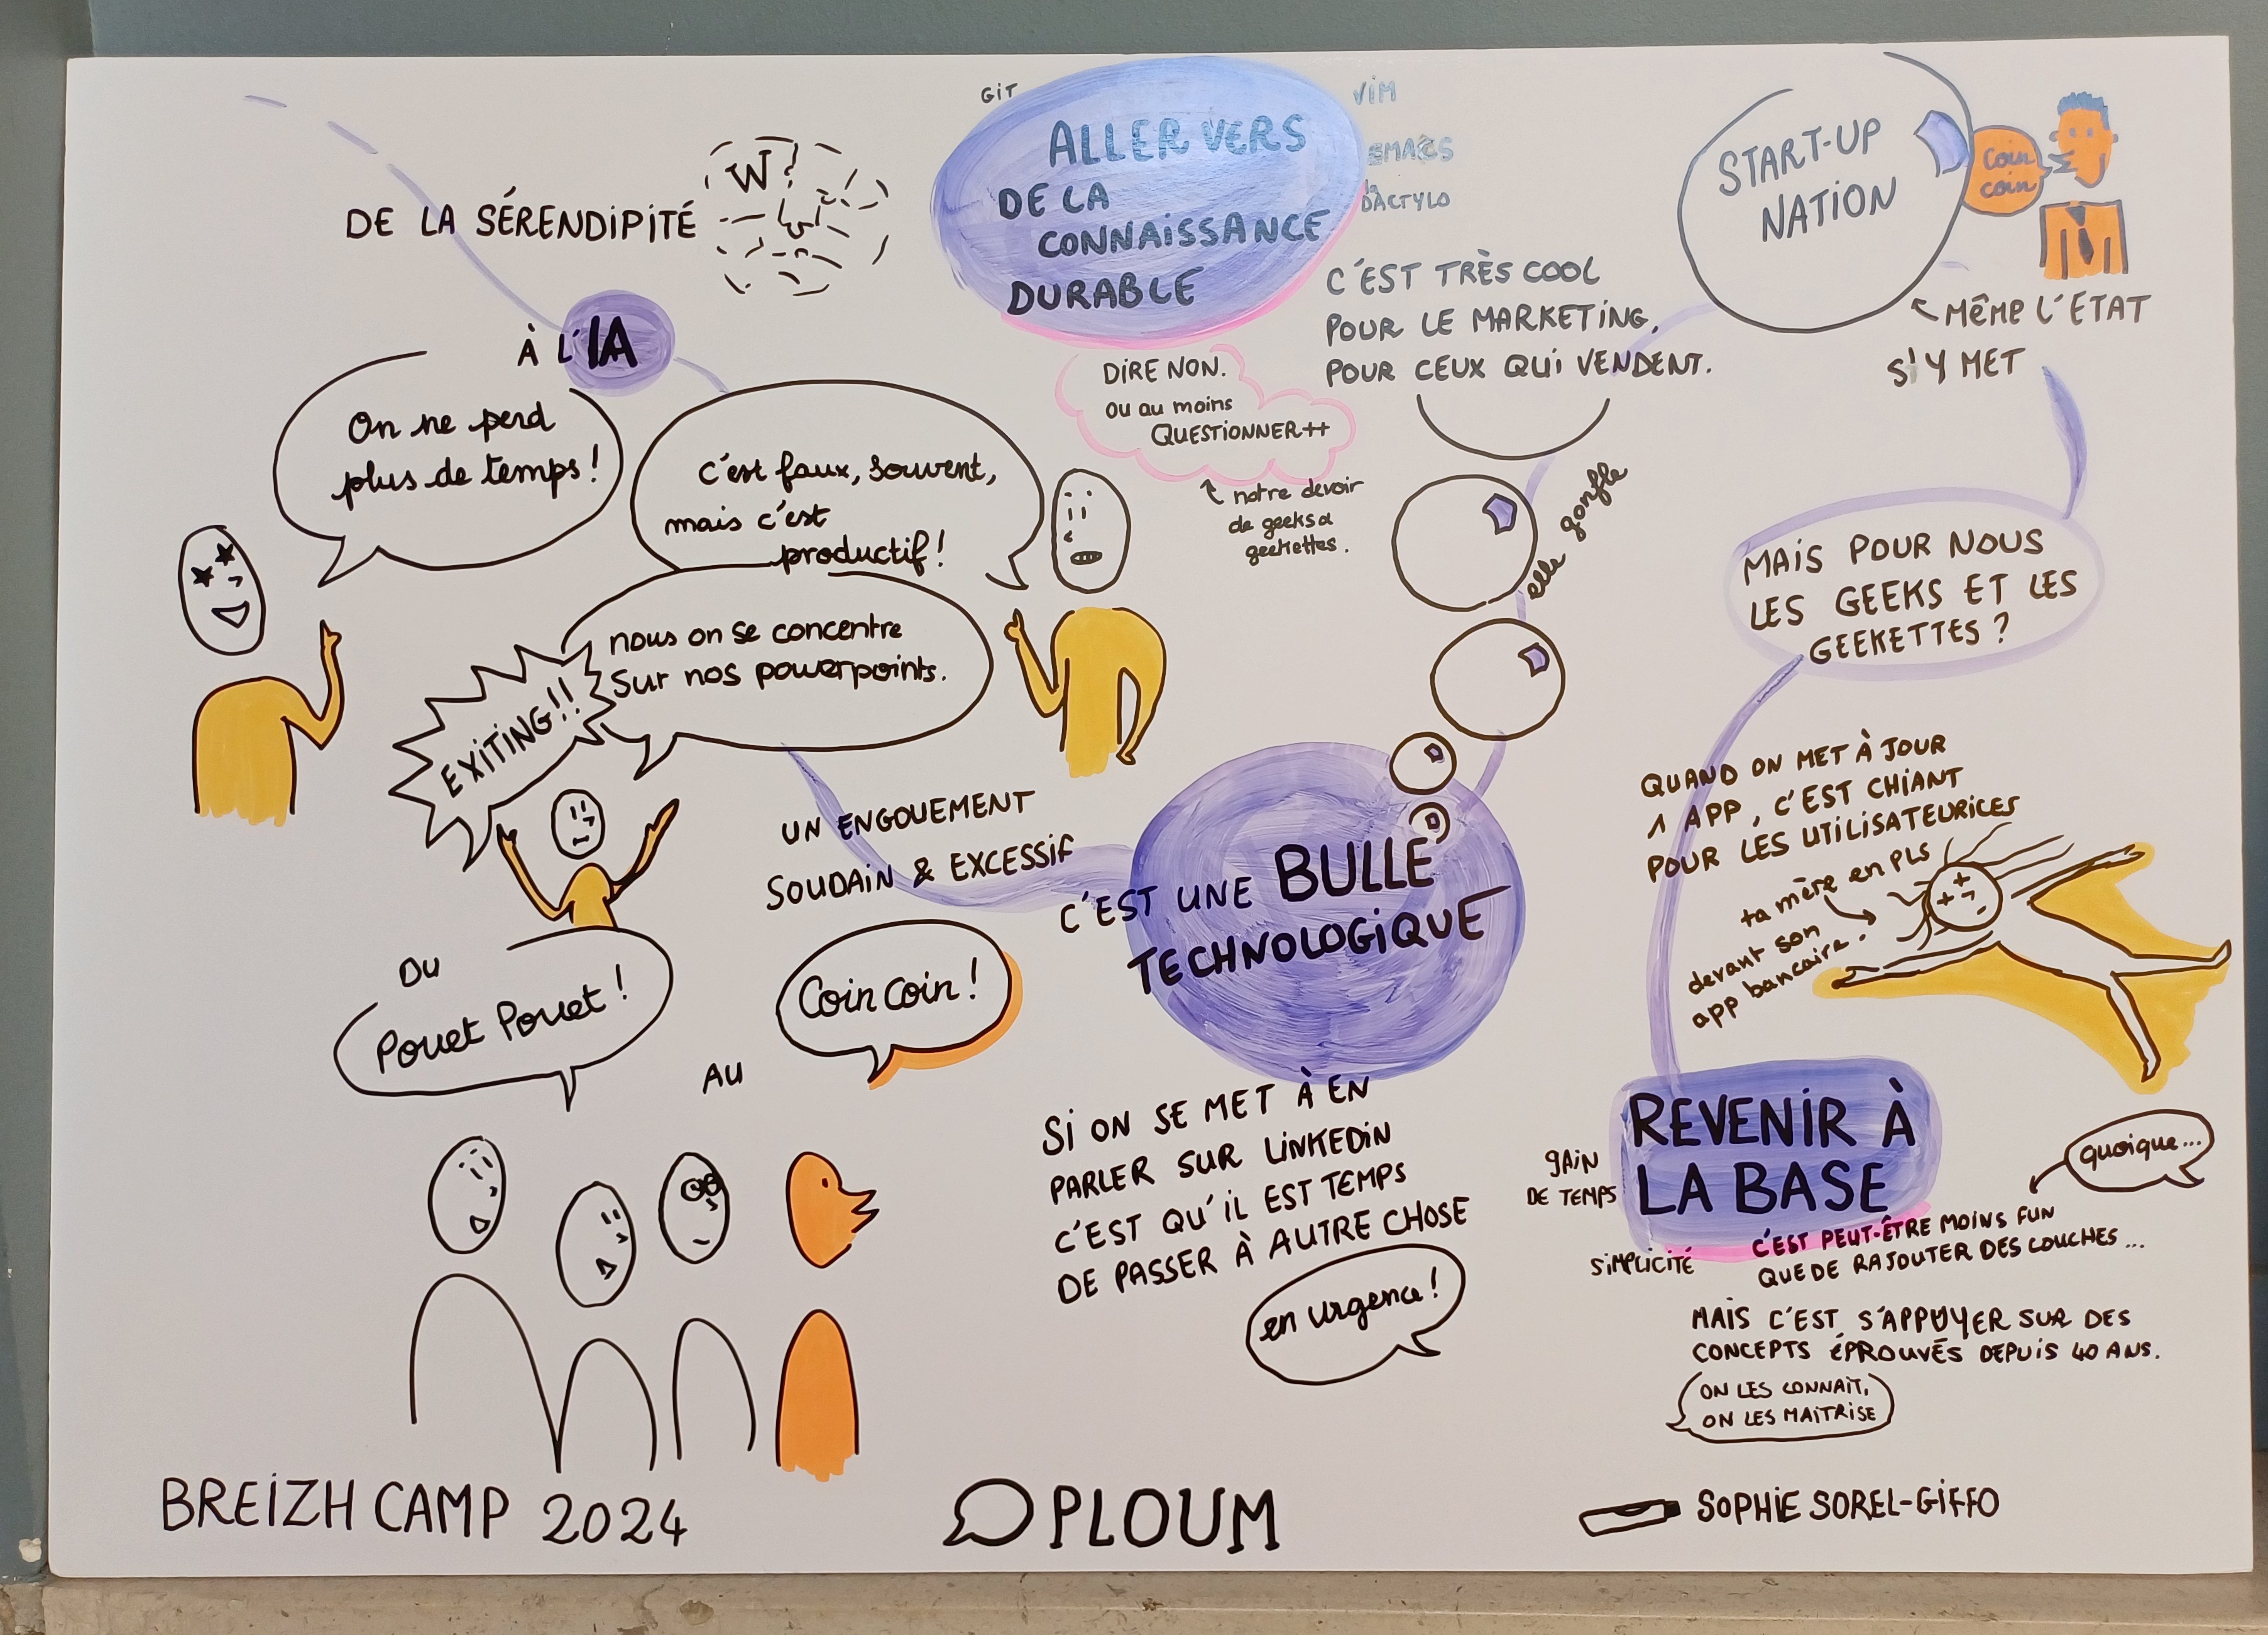 DE LA SÉRENDIPITÉ
W?
À L'IA
On ne perd
plus de temps!
c'est faux, souvent,
mais c'est
productif!
nous on se concentre
sur nos powerpoints.
EXITING!!
DU
Pouet Pouet!
AU
Coin coin!
UN ENGOUEMENT
SOUDAIN & EXCESSIF
C'EST UNE BULLE
TECHNOLOGIQUE
SI ON SE MET À EN
PARLER SUR LINKEDIN
C'EST QU'IL EST TEMPS
DE PASSER À AUTRE CHOSE
en urgence!
elle gonfle
C'EST TRÈS COOL
POUR LE MARKETING,
POUR CEUX QUI VENDENT.
START-UP
NATION
coin
coin
MÊME L'ETAT
S'Y MET
MAIS POUR NOUS
LES GEEKS ET LES
GEEKETTES?
QUAND ON MET À JOUR
1 APP, C'EST CHIANT
POUR LES UTILISATEURICES
ta mère en PLS
devant son
app bancaire.
REVENIR À
LA BASE
GAIN
DE TEMPS
SIMPLICITÉ
quoique...
C'EST PEUT-ÊTRE MOINS FUN
QUE DE RAJOUTER DES COUCHES...
MAIS C'EST S'APPUYER SUR DES
CONCEPTS ÉPROUVÉS DEPUIS 40 ANS.
ON LES CONNAIT,
ON LES MAITRISE
GIT
VIM
EMACS
la
DACTYLO
ALLER VERS
DE LA
CONNAISSANCE
DURABLE
DIRE NON.
OU au moins
QUESTIONNER++
notre devoir
de geeks &
geekettes.
BREIZH CAMP 2024
PLOUM
SOPHIE SOREL-GIFFO